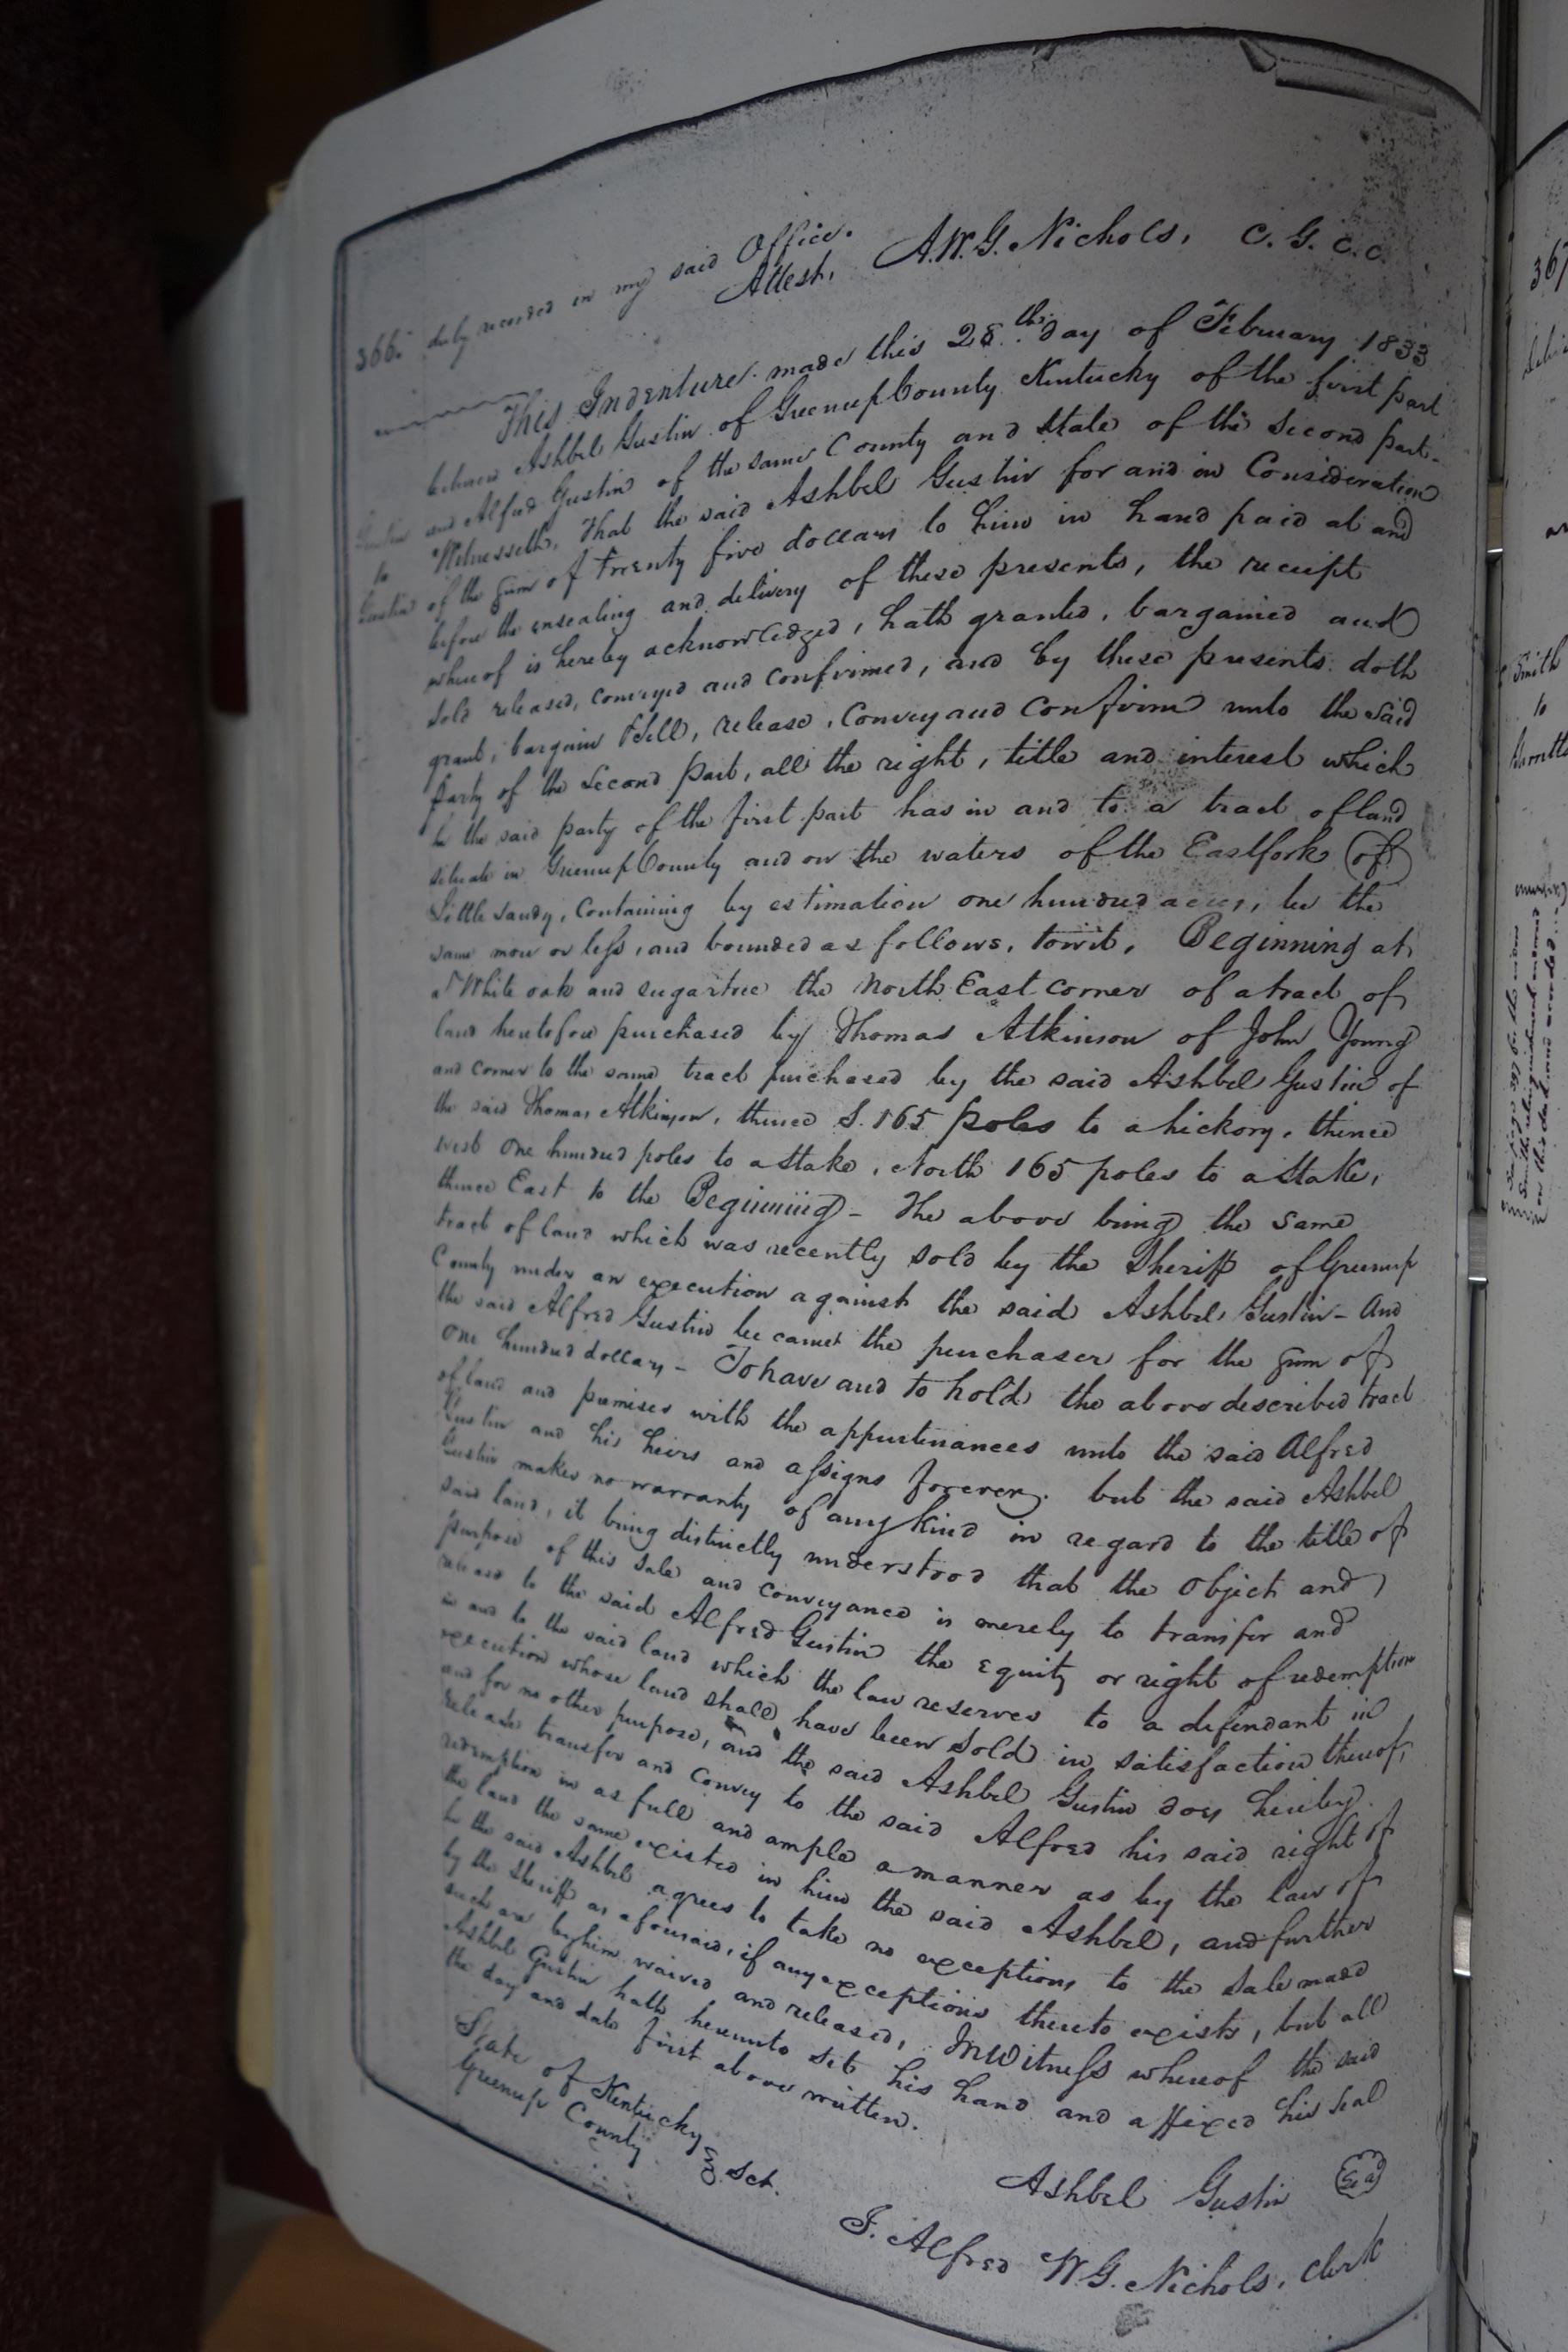 366. duly recorded in my said Office.
Attest, A.W.G. Nichols, C.G.C.C.
This Indenture made this 28.th day of February 1833
between Ashbel Gustin of Greenup County Kentucky of the first part
and Alfred Gustin of the same County and State of the Second part.
Gustin
to
Gustin
Witnesseth, That the said Ashbel Gustin for and in Consideration
of the sum of twenty five dollars to him in hand paid at and
before the ensealing and delivery of these presents, the receipt
whereof is hereby acknowledged, hath granted, bargained and
sold released, conveyed and confirmed, and by these presents doth
grant, bargain sell, release, convey and confirm unto the said
party of the Second part, all the right, title and interest which
he the said party of the first part has in and to a tract of land
situate in Greenup County and on the waters of the East fork of
Little Sandy, Containing by estimation one hundred acres, be the
same more or less, and bounded as follows, towit, Beginning at
a White oak and sugartree the North East corner of a tract of
land heretofore purchased by Thomas Atkinson of John Young
and corner to the same tract purchased by the said Ashbel Gustin of
the said Thomas Atkinson, thence S. 165 poles to a hickory, thence
west one hundred poles to a Stake, North 165 poles to a Stake,
thence East to the Beginning - The above being the same
tract of land which was recently sold by the Sheriff of Greenup
County under an execution against the said Ashbel Gustin - And
the said Alfred Gustin became the purchaser for the sum of
one hundred dollars - To have and to hold the above described tract
of land and premises with the appurtenances unto the said Alfred
Gustin and his heirs and assigns forever. but the said Ashbel
Gustin makes no warranty of any kind in regard to the title of
said land, it being distinctly understood that the Object and
purpose of this sale and conveyance is merely to transfer and
release to the said Alfred Gustin the equity or right of redemption
in and to the said land which the law reserves to a defendant in
execution whose land shall have been sold in satisfaction thereof,
and for no other purpose, and the said Ashbel Gustin does hereby
release transfer and convey to the said Alfred his said right of
redemption in as full and ample a manner as by the law of
the land the same existed in him the said Ashbel, and further
he the said Ashbel agrees to take no exceptions to the sale made
by the Sheriff as aforesaid, if any exceptions thereto exists, but all
such are by him waived and released, In Witness whereof the said
Ashbel Gustin hath hereunto set his hand and affixed his seal
the day and date first above written.
Ashbel Gustin Seal
State of Kentucky
Greenup County Sct.
I. Alfred W.G. Nichols, Clerk
367
Smith
to